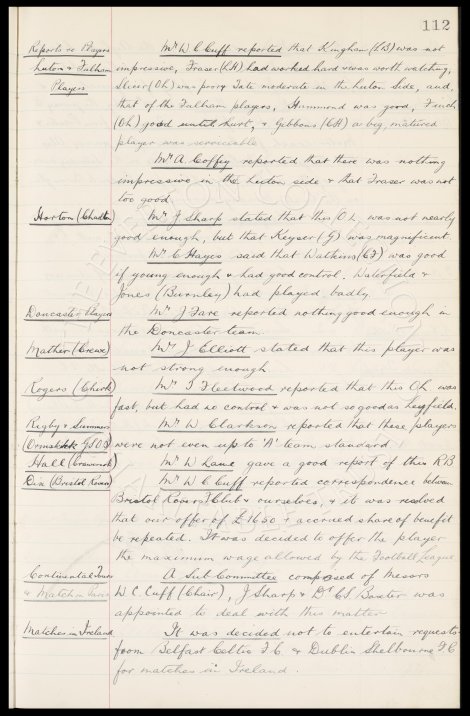 112
Reports re Players Mr W C Cuff reported that Kingham (LB) was not
Luton & Fulham impressive, Fraser (LH) had worked hard & was worth watching,
Players (OL) was poor & Tate moderate in the Luton side, and,
that of the Fulham players, Hammond was good, Finch
(OL) good until hurt, & Gibbons (CH) a big, matured
player was serviceable.
Mr A. Coffey reported that there was nothing
impressive in the Luton side & that Fraser was not
too good.
Horton (Charlton) Mr J Sharp stated that this O L was not nearly
good enough, but that Keyser (G) was magnificent
Mr C Hayes said that Watkins (CF) was good
if young enough & had good control. Waterfield &
Jones (Burnley) had played badly.
Doncaster Players Mr J Fare reported nothing good enough in
the Doncaster team.
Mather (Crewe) Mr J Elliott stated that this player was
not strong enough
Rogers (Chirk) Mr T Fleetwood reported that this O L was
fast, but had no control & was not so good as Leyfield.
Rigby & Summers Mr W Clarkson reported that these players
(Ormskirk GSOB) were not even up to 'A' team standard
Hall Mr W Lowe gave a good report of this R B
Dix (Bristol Rovers) Mr W C Cuff reported correspondence between
Bristol Rovers F Club & ourselves, & it was resolved
that our offer of £1650 + accrued share of benefit
be repeated. It was decided to offer the player
the maximum wage allowed by the Football League
Continental Tour A Sub Committee composed of Messrs
& Match in Paris W C Cuff (Chair), J Sharp & Dr C S Baxter was
appointed to deal with this matter
Matches in Ireland It was decided not to entertain requests
from Belfast Celtic F. C. & Dublin Shelbourne F C
for matches in Ireland.